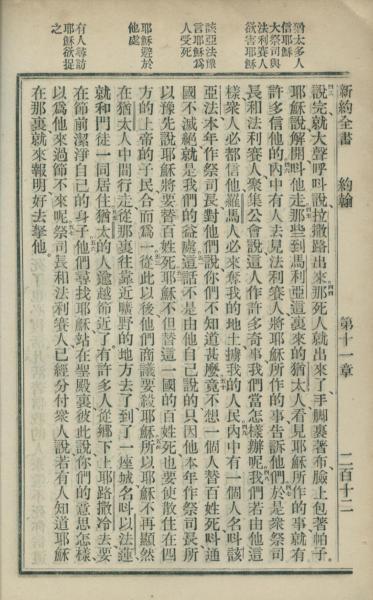 新約全書　約翰　第十一章　二百十二
猶太多人
信耶穌
大祭司與
法利賽人
欲害耶穌
該亞法豫
言耶穌爲
人受死
耶穌避於
他處
有人尋訪
耶穌欲捉
之
說完就大聲呼呌說拉撒路出來那死人就出來了手脚裹著布臉上包著帕子
耶穌說解開呌他走那些到馬利亞這裏來的猶太人看見耶穌所作的事就有
許多信他的內中有人去見法利賽人將耶穌所作的事告訴他們於是衆祭司
長和法利賽人聚集公會說這人作許多奇事我們當怎樣辦呢我們若由他這
樣衆人必都信他羅馬人必來奪我的地土擄我的人民內中有一個人名呌該
亞法本年作祭司長對他們說你們不知道甚麽竟不想一個人替百姓死呌通
國不滅絕就是我們的益處這話不是由他自己說的只因他本年作祭司長所
以豫先說耶穌將要替百姓死耶穌不但替這一國的百姓死也要使散住在四
方的上帝的子民合而爲一從此以後他們商議要殺耶穌所以耶穌不再顯然
在猶太人中間行走從那裏往靠近曠野的地方去了到了一座城名呌以法蓮
就和門徒一同居住猶太的人逾越節近了有許多人從鄉下上耶路撒冷去要
在節前潔淨自己的身子他們尋找耶穌站在聖殿裏彼此說你們的意思怎樣
以爲他來過節不來呢祭司長和法利賽人已經分付衆人說若有人知道耶穌
在那裏就來報明好去拏他。